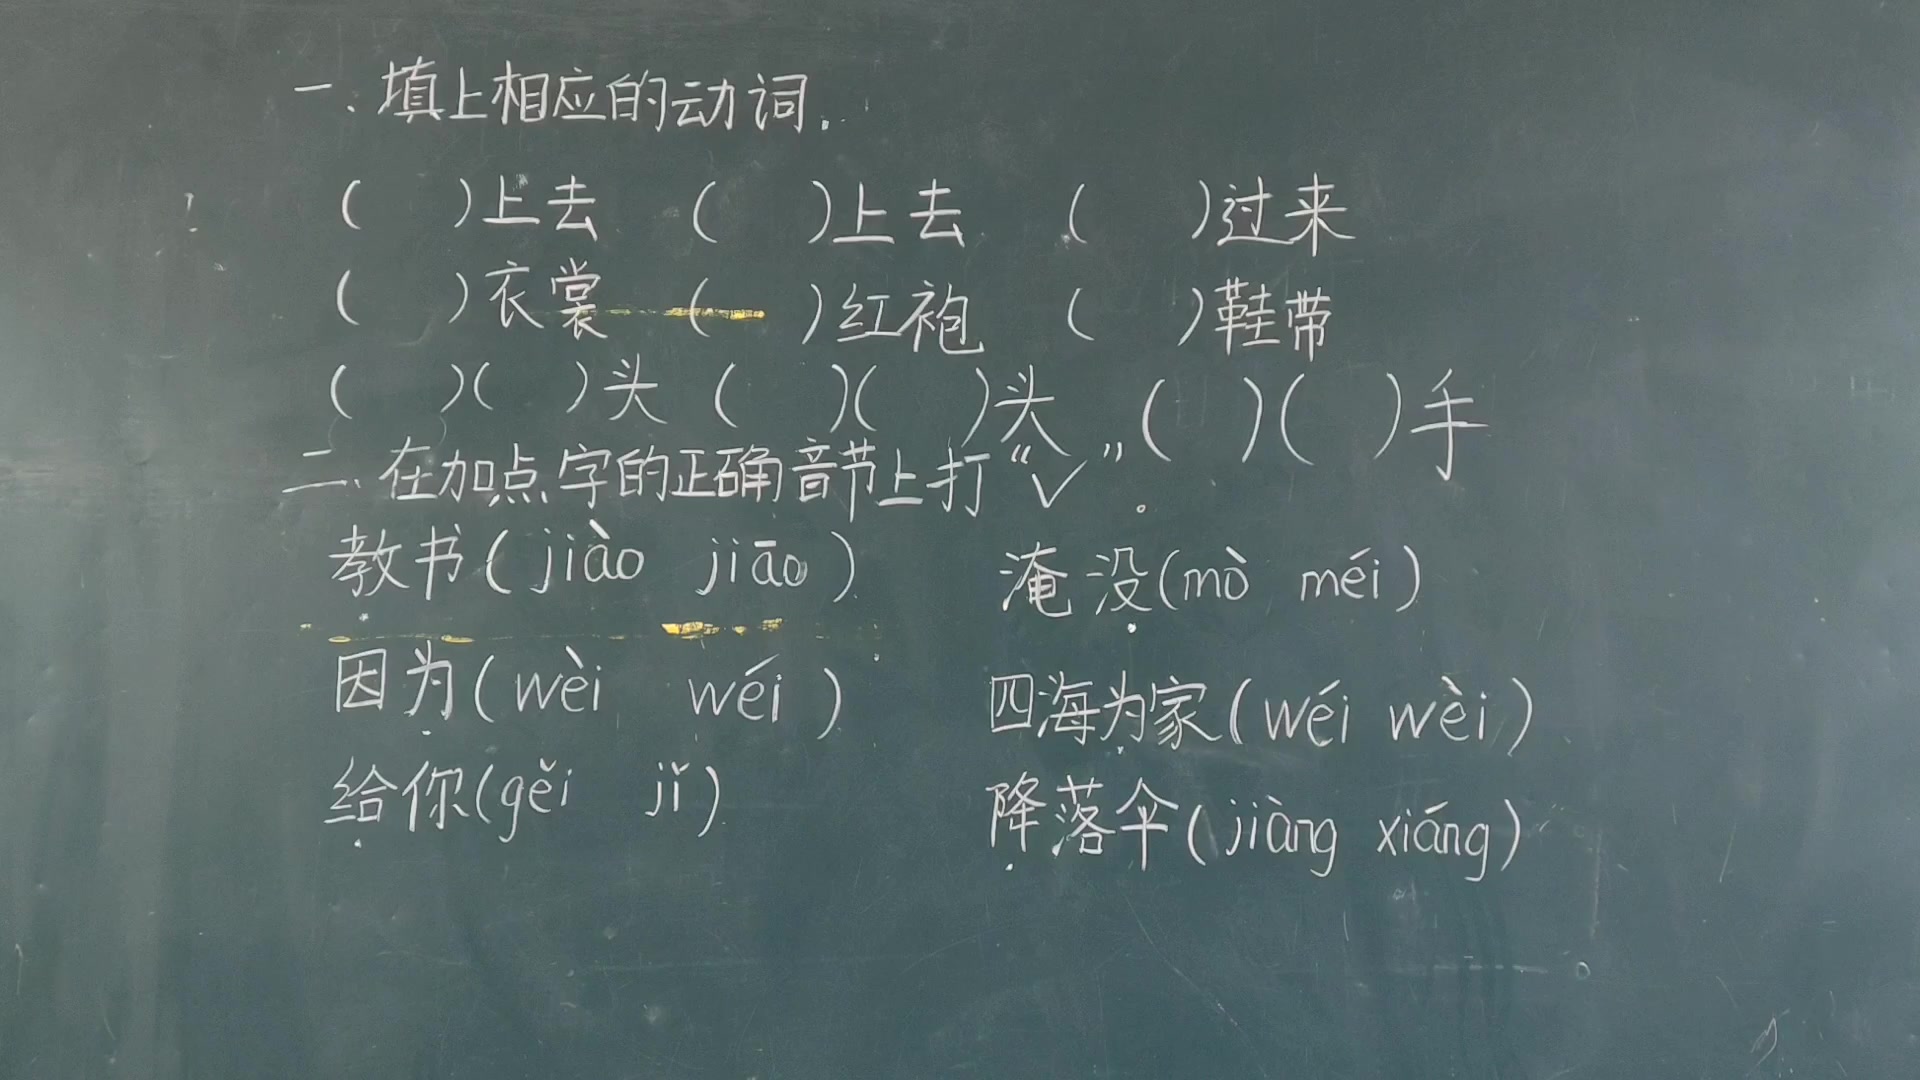 一、填上相应的动词.
(  )上去 (  )上去 (  )过来
(  )衣裳 (  )红袍 (  )鞋带
(  )(  )头 (  )(  )头 (  )(  )手
二、在加点字的正确音节上打“✓”。
教书(jiào jiāo) 淹没(mò méi)
因为(wèi wéi) 四海为家(wéi wèi)
给你(gěi jǐ) 降落伞(jiàng xiáng)